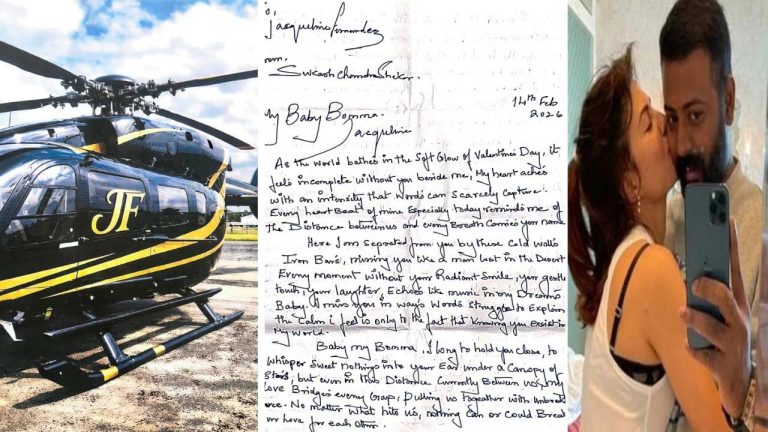 JF
To,
Jacqueline Fernandez
From,
Sukash Chandra Shekar
14th Feb
2026
My Baby Bomma
Jacqueline
As the world bathes in the Soft Glow of Valentines Day, it
feels incomplete without you beside me, My heart aches
with an intensity that words can Scarcely Capture.
Every heart Beat of mine Especially today reminds me of
the Distance between us and every Breath Carries your name
Here I am separated from you by these Cold walls
Iron Bars, missing you like a man lost in the Desert
Every moment without your Radiant Smile, your gentle
touch, your laughter, Echoes like music in my Dreams
Baby, I miss you in ways words Struggle to Explain
the Calm i feel is only to the fact that knowing you Exist in
My world.
Baby my Bomma, I long to hold you close, to
whisper Sweet nothings into your Ear under a Canopy of
Stars, but even in this Distance Currently Between us, my
love Bridges every Gap, pulling us together with
No matter What hits us, nothing Can or Could Break
our love for each other.